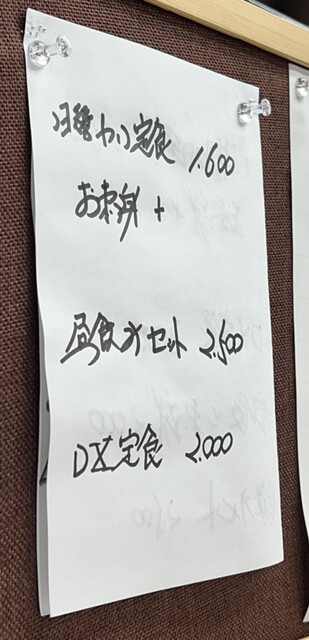 日替わり定食 1.600
お刺身 +
昼飲みセット 2.500
DX定食 2.000